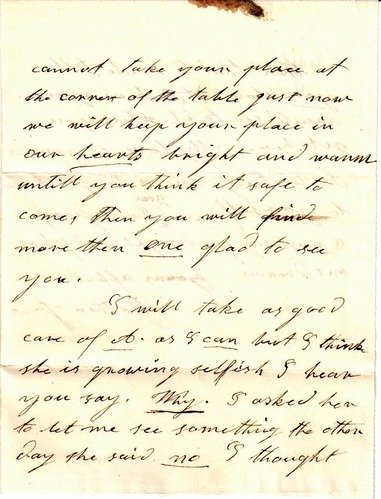 cannot take your place at
the corner of the table just now
we will keep your place in
our hearts bright and warm
untill you think it safe to
come, then you will find
more then one glad to see
you.
I will take as good
care of A. as I can but I think
she is growing selfish I hear
you say. Why. I asked her
to let me see something the other
day she said no I thought